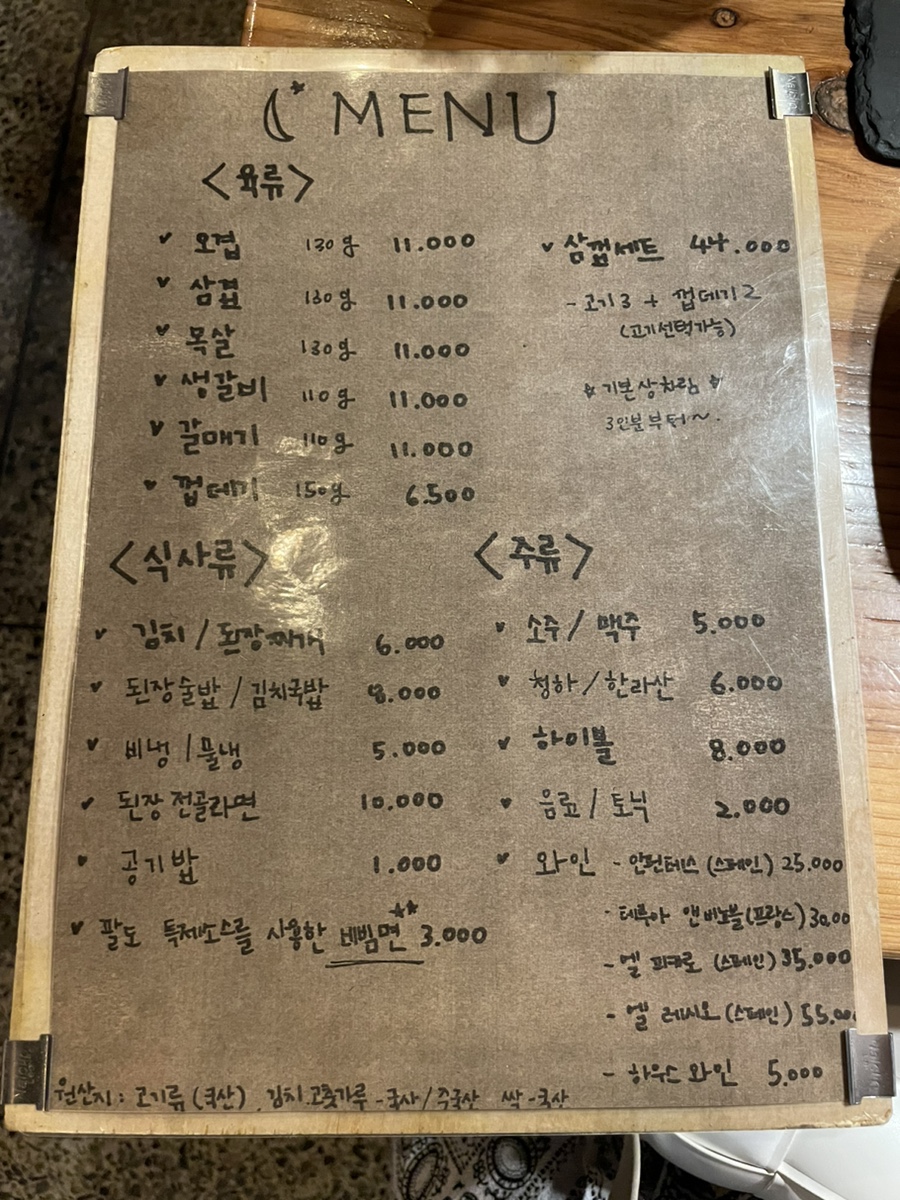 MENU
<육류>
오겹 130g 11.000
삼겹 130g 11.000
목살 130g 11.000
생갈비 110g 11.000
갈매기 110g 11.000
껍데기 150g 6.500
삼껍세트 44.000
- 고기3 + 껍데기2
(고기선택가능)
☆ 기본상차림 ☆
3인분부터~.
<식사류>
김치/된장찌개 6.000
된장술밥/김치국밥 8.000
비냉/물냉 5.000
된장전골라면 10.000
공기밥 1.000
팔도 특제소스를 사용한 비빔면 3.000
<주류>
소주/맥주 5.000
청하/한라산 6.000
하이볼 8.000
음료/토닉 2.000
와인 - (스페인) 25.000
- 테루아 앤비노블(프랑스) 30.00
- 엘 피크로 (스페인) 35.000
- 엘 레시오 (스페인) 55.00
- 하우스 와인 5.000
원산지: 고기류(국산), 김치.고춧가루 -국산/중국산 쌀 -국산